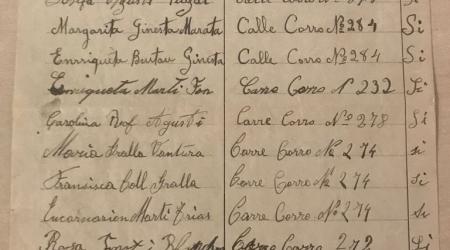 Margarita Ginesta Marata Calle Corro Nº 284 Si
Enrriqueta Butau Ginesta Calle Corro Nº 284 Si
Enriqueta Marti Fon Carre Corro N 232 Si
Carolina Rof Agusti Carre Corro Nº 278 Si
Maria Gralla Ventura Carre Corro Nº 274 si
Fransisca Coll Gralla Carre Corro Nº 274 si
Encarnacion Marti Trias Carre Corro Nº 274 Si
Rosa Font i Carre Corro 272 Si